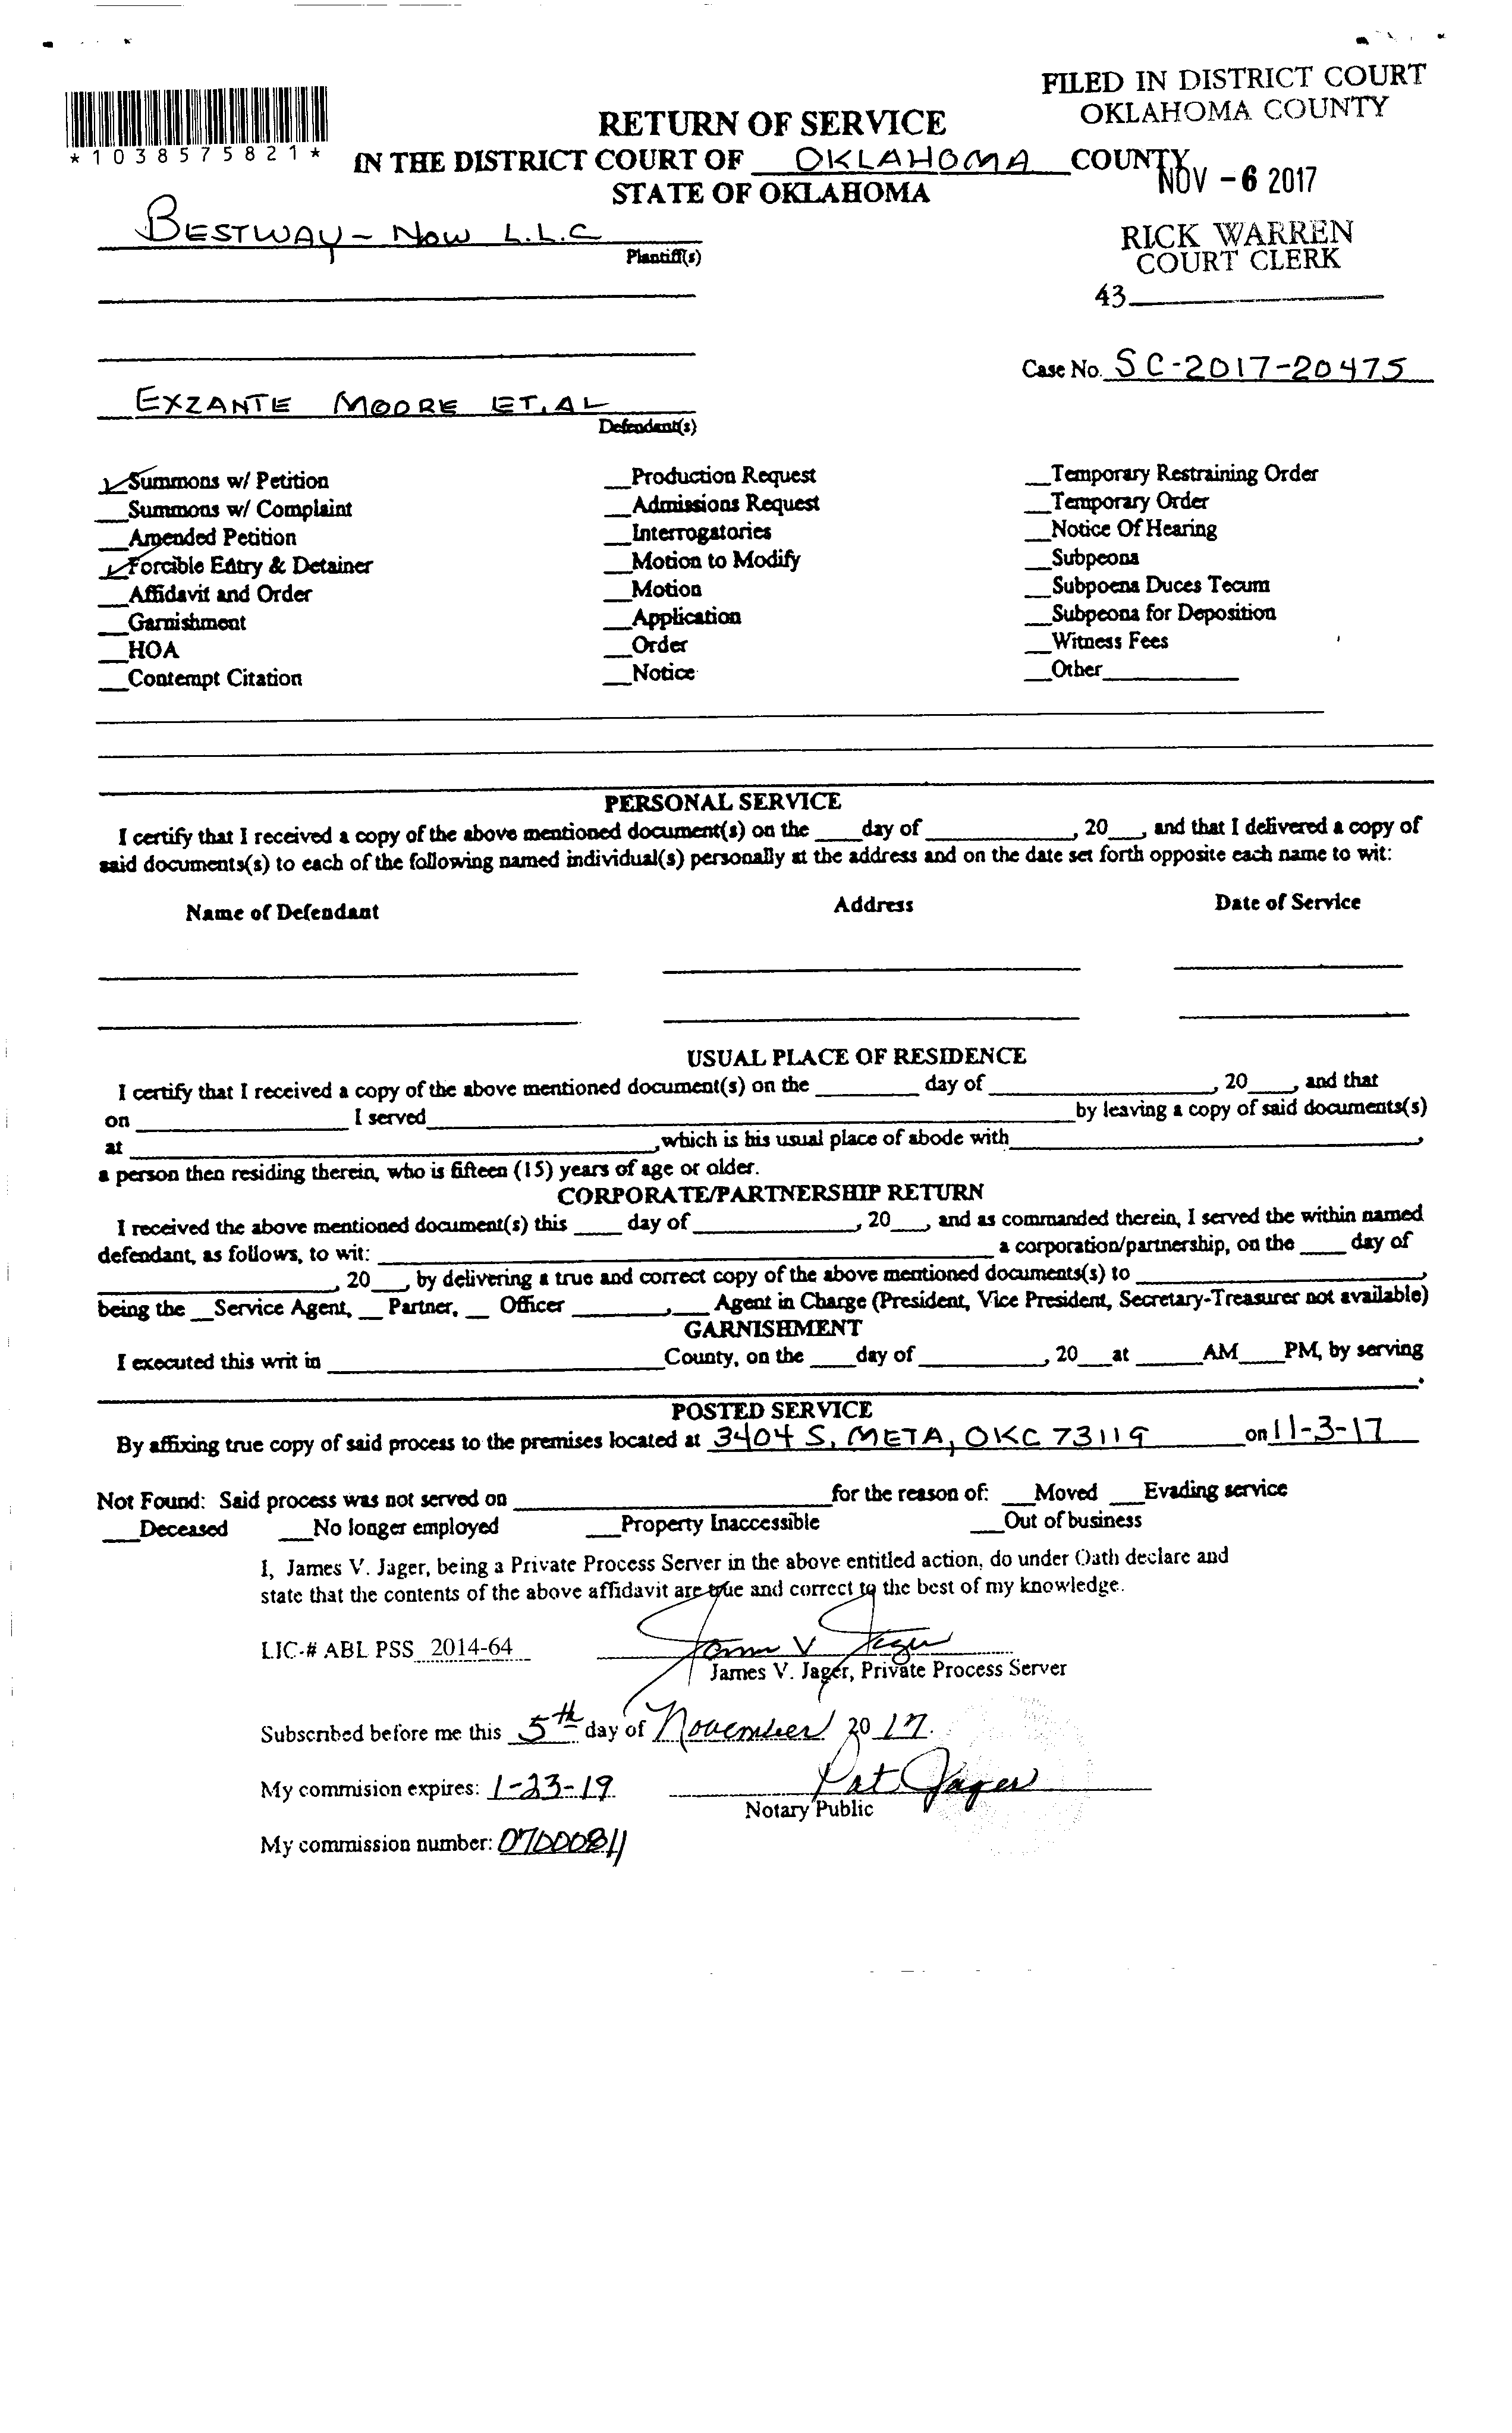 FILED IN DISTRICT COURT
OKLAHOMA COUNTY
*1038575821*
RETURN OF SERVICE
IN THE DISTRICT COURT OF OKLAHOMA COUNTY
NOV -6 2017
STATE OF OKLAHOMA
RICK WARREN
COURT CLERK
43
BESTWAY - NOW L.L.C
Plantiff(s)
Case No. SC-2017-20475
EXZANTE MOORE ET.AL
Defendant(s)
Summons w/ Petition Production Request Temporary Restraining Order
Summons w/ Complaint Admissions Request Temporary Order
Amended Petition Interrogatories Notice Of Hearing
Forcible Entry & Detainer Motion to Modify Subpeona
Affidavit and Order Motion Subpoena Duces Tecum
Garnishment Application Subpeona for Deposition
HOA Order Witness Fees
Contempt Citation Notice Other
PERSONAL SERVICE
I certify that I received a copy of the above mentioned document(s) on the ___ day of ___, 20___, and that I delivered a copy of
said documents(s) to each of the following named individual(s) personally at the address and on the date set forth opposite each name to wit:
Name of Defendant Address Date of Service
USUAL PLACE OF RESIDENCE
I certify that I received a copy of the above mentioned document(s) on the ___ day of ___, 20___, and that
on ___ I served ___ by leaving a copy of said documents(s)
at ___, which is his usual place of abode with ___,
a person then residing therein, who is fifteen (15) years of age or older.
CORPORATE/PARTNERSHIP RETURN
I received the above mentioned document(s) this ___ day of ___, 20___, and as commanded therein, I served the within named
defendant, as follows, to wit: ___ a corporation/partnership, on the ___ day of
___, 20___, by delivering a true and correct copy of the above mentioned documents(s) to ___,
being the __Service Agent, __ Partner, __ Officer ___,___ Agent in Charge (President, Vice President, Secretary-Treasurer not available)
GARNISHMENT
I executed this writ in ___ County, on the ___ day of ___, 20___ at ___ AM ___ PM, by serving
___.
POSTED SERVICE
By affixing true copy of said process to the premises located at 3404 S. META, OKC 73119 on 11-3-17
Not Found: Said process was not served on ___ for the reason of: ___Moved ___Evading service
___Deceased ___No longer employed ___Property Inaccessible ___Out of business
I, James V. Jager, being a Private Process Server in the above entitled action, do under Oath declare and
state that the contents of the above affidavit are true and correct to the best of my knowledge.
LIC-# ABL PSS 2014-64 James V Jager
James V. Jager, Private Process Server
Subscribed before me this 5th day of November 2017.
My commision expires: 1-23-19 Pat Jager
Notary Public
My commission number: 07000811